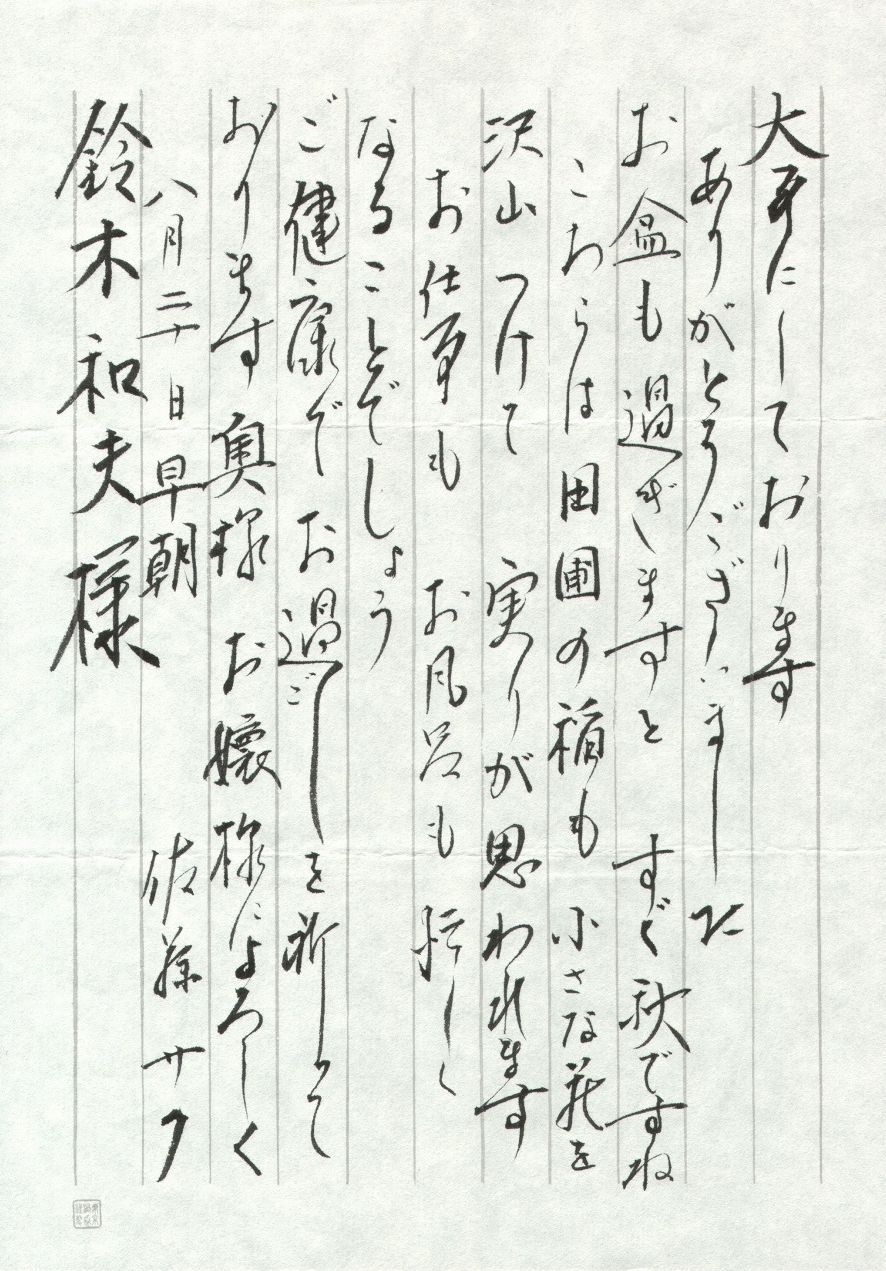 大事にしております
ありがとうございました
お盆も過ぎますと すぐ秋ですね
こちらは田圃の稲も 小さな花を
沢山つけて 実りが思われます
お仕事も お風呂も 忙しく
なることでしょう
ご健康でお過ごしを祈って
おります 奥様 お嬢様によろしく
八月二十日 早朝 佐藤サク
鈴木和夫様